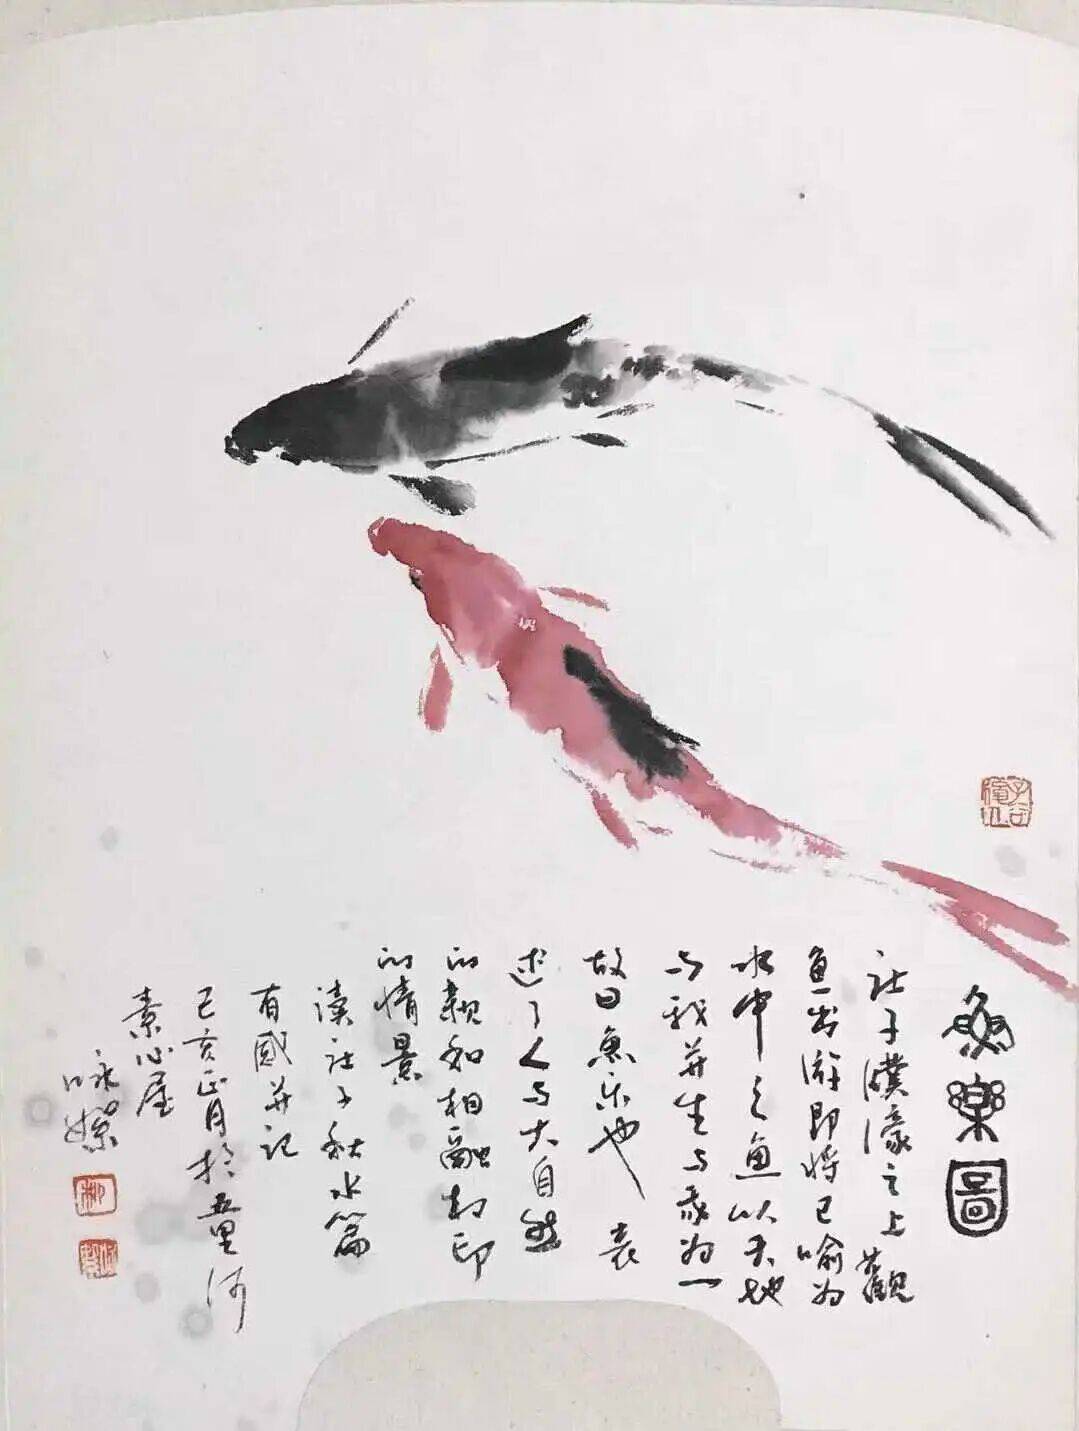 魚樂圖
莊子濮濠之上觀
魚出游即將己喻为
水中之魚以天地
与我并生与我为一
故曰魚乐也 表
述了人与大自然
的親和相融相印
的情景
读莊子秋水篇
有感并记
己亥正月於五里河
素心屋
咏絮
柳